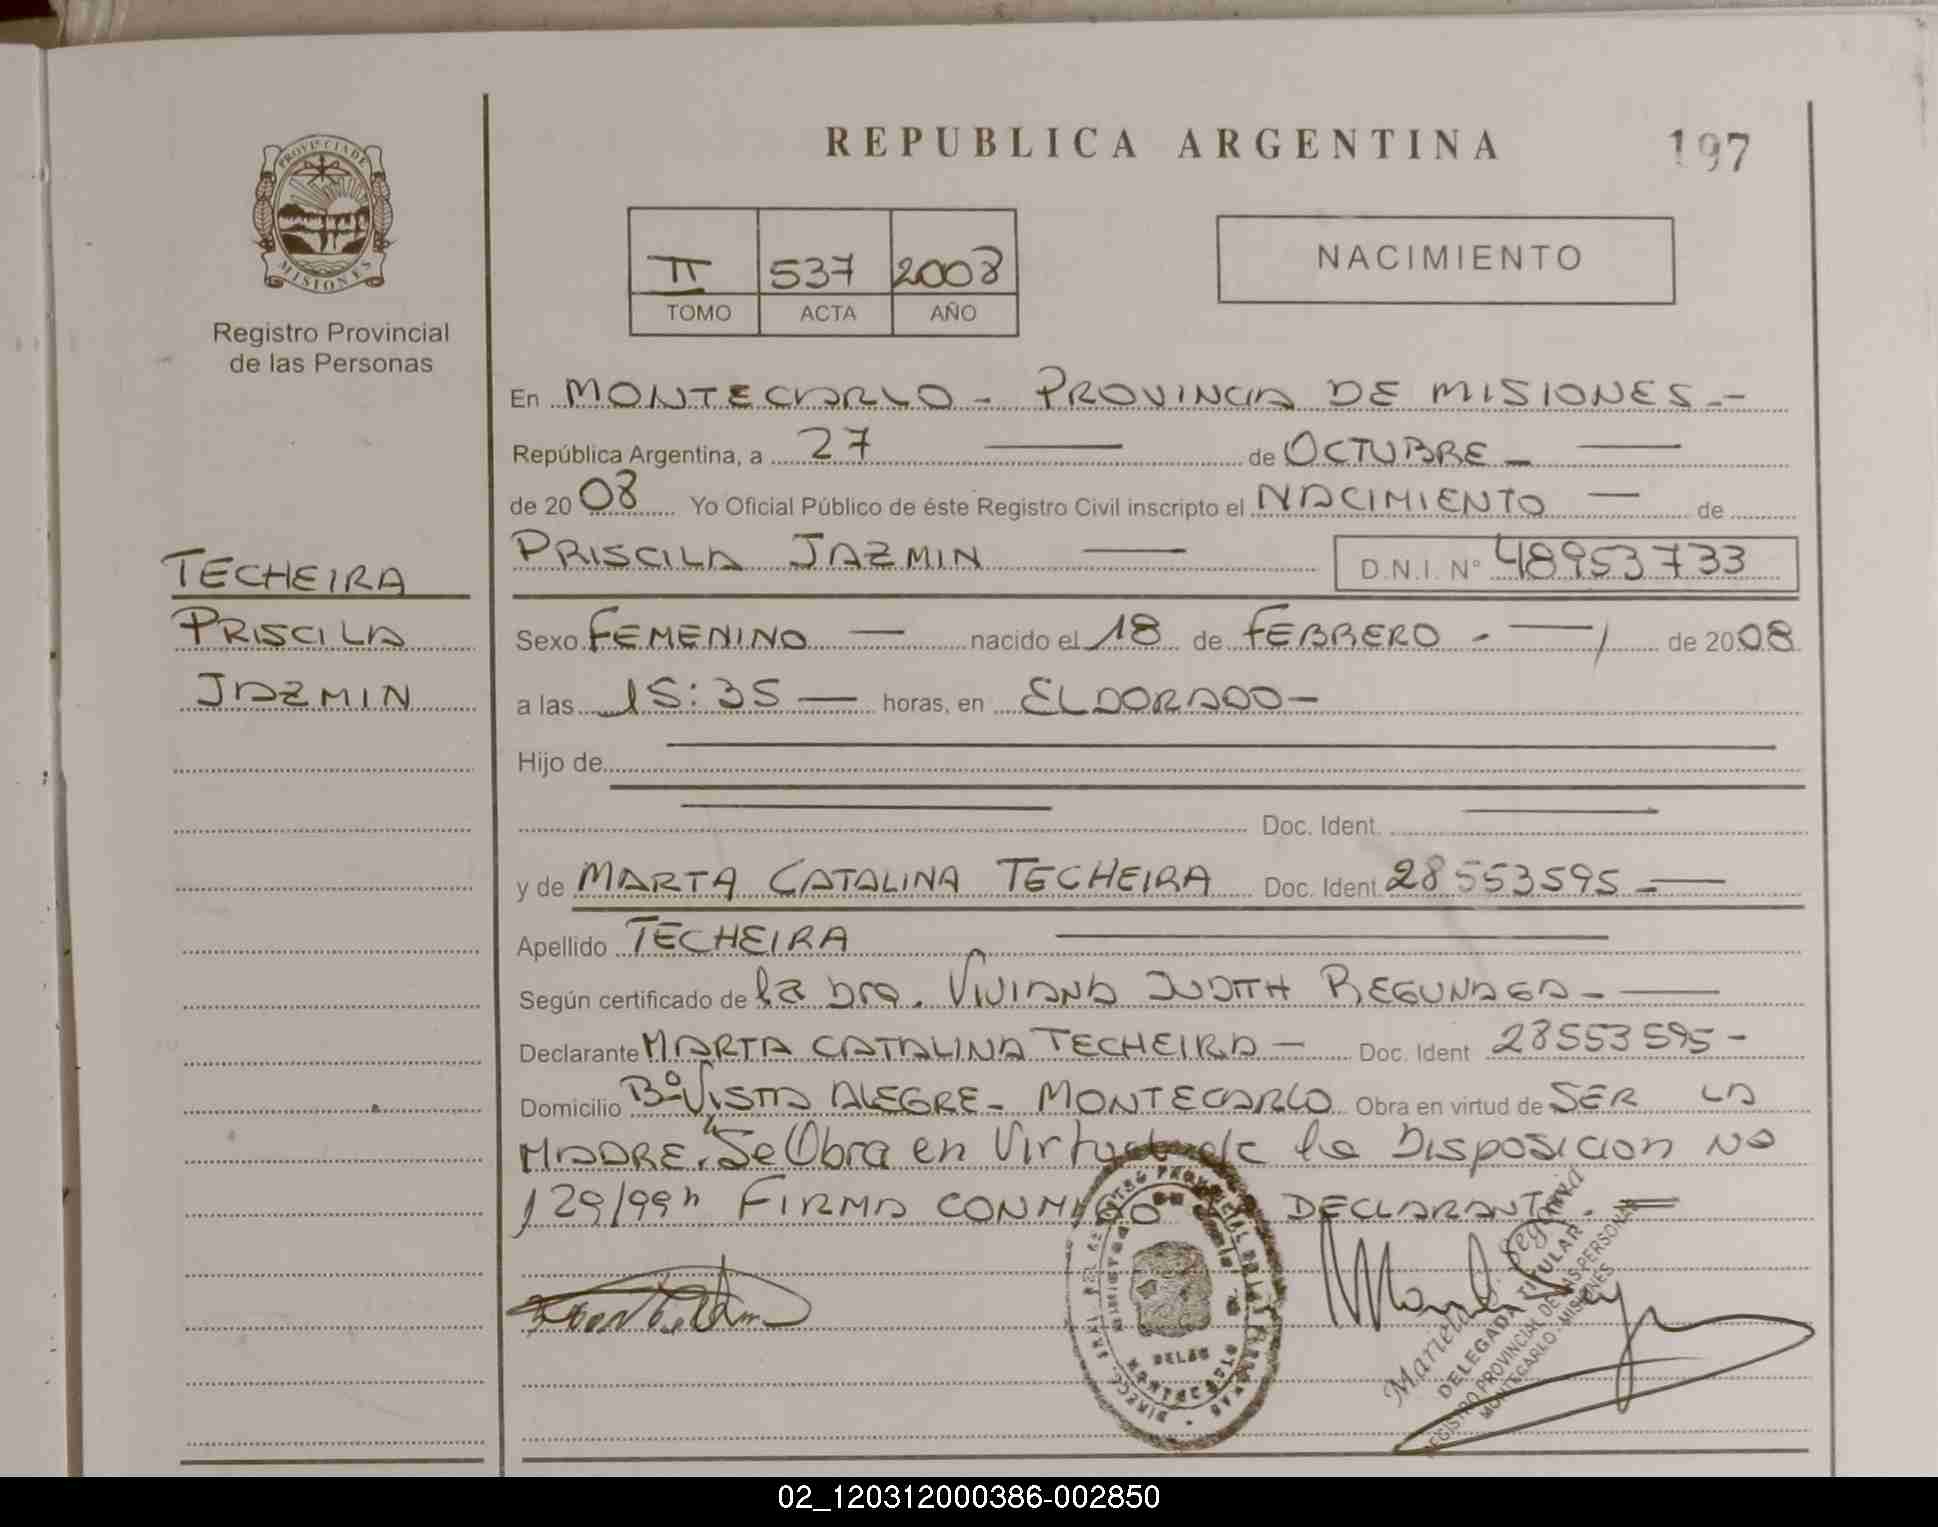 REPUBLICA ARGENTINA
197
PROVINCIA DE
MISIONES
Registro Provincial
de las Personas
II 537 2008
TOMO ACTA AÑO
NACIMIENTO
En MONTECARLO - PROVINCIA DE MISIONES.-
República Argentina, a 27 de OCTUBRE -
de 2008 Yo Oficial Público de éste Registro Civil inscripto el NACIMIENTO de
PRISCILA JAZMIN D.N.I. N° 48953733
TECHEIRA
PRISCILA
JAZMIN
Sexo FEMENINO nacido el 18 de FEBRERO - de 2008
a las 15:35 horas, en ELDORADO-
Hijo de
Doc. Ident.
y de MARTA CATALINA TECHEIRA Doc. Ident 28553595 -
Apellido TECHEIRA
Según certificado de la Dra. VIVIANA JUDITH REGUNAGA -
Declarante MARTA CATALINA TECHEIRA - Doc. Ident 28553595 -
Domicilio B° VISTA ALEGRE - MONTECARLO Obra en virtud de SER LA
MADRE. "Se Obra en Virtud de la DISPOSICION NO
129/99" FIRMA CONMIGO LA DECLARANTE. =
DELEGADA TITULAR
REGISTRO PROVINCIAL DE LAS PERSONAS
MONTECARLO - MISIONES
02_120312000386-002850